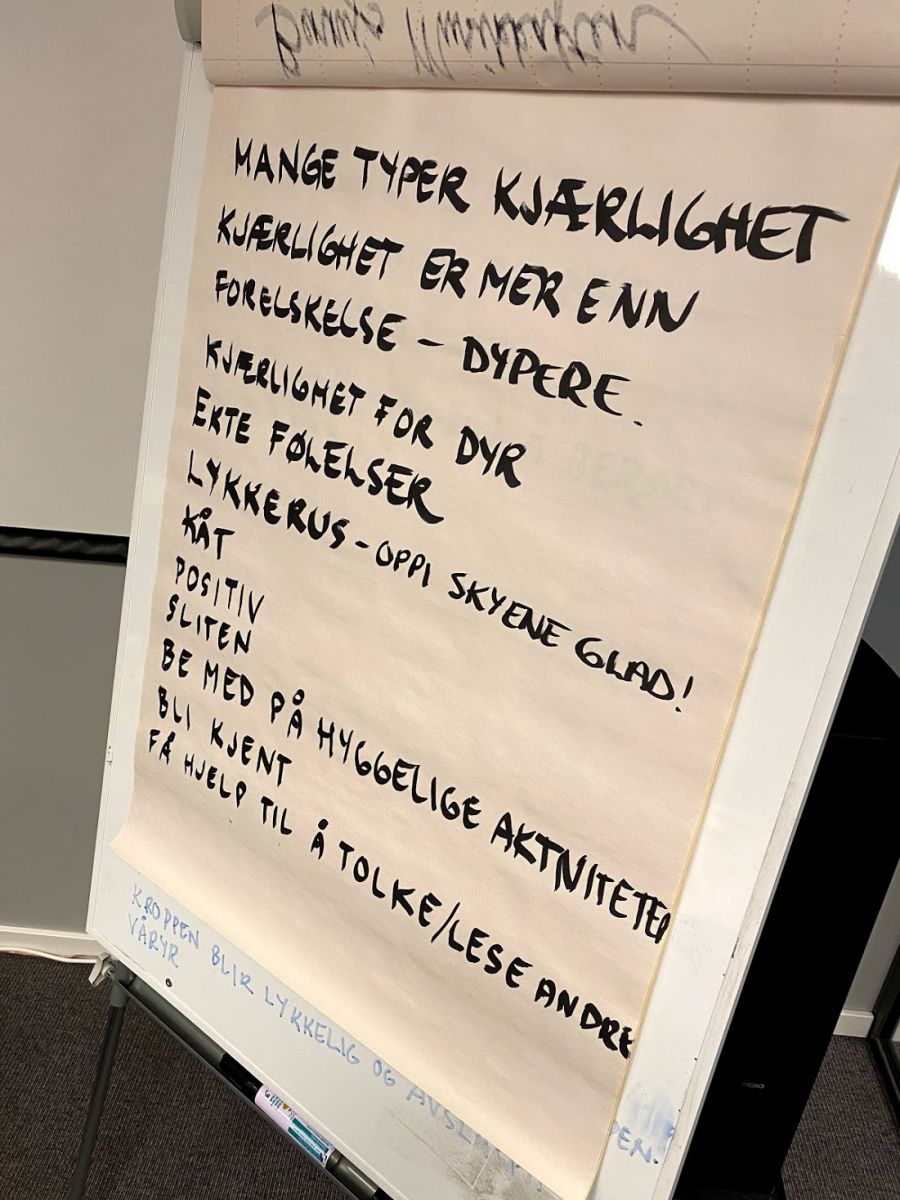 MANGE TYPER KJÆRLIGHET
KJÆRLIGHET ER MER ENN
FORELSKELSE - DYPERE.
KJÆRLIGHET FOR DYR
EKTE FØLELSER
LYKKERUS - OPPI SKYENE GLAD!
KÅT
POSITIV
SLITEN
BE MED PÅ HYGGELIGE AKTIVITETER
BLI KJENT
FÅ HJELP TIL Å TOLKE/LESE ANDRE
KROPPEN BLIR LYKKELIG OG
VÅRYR